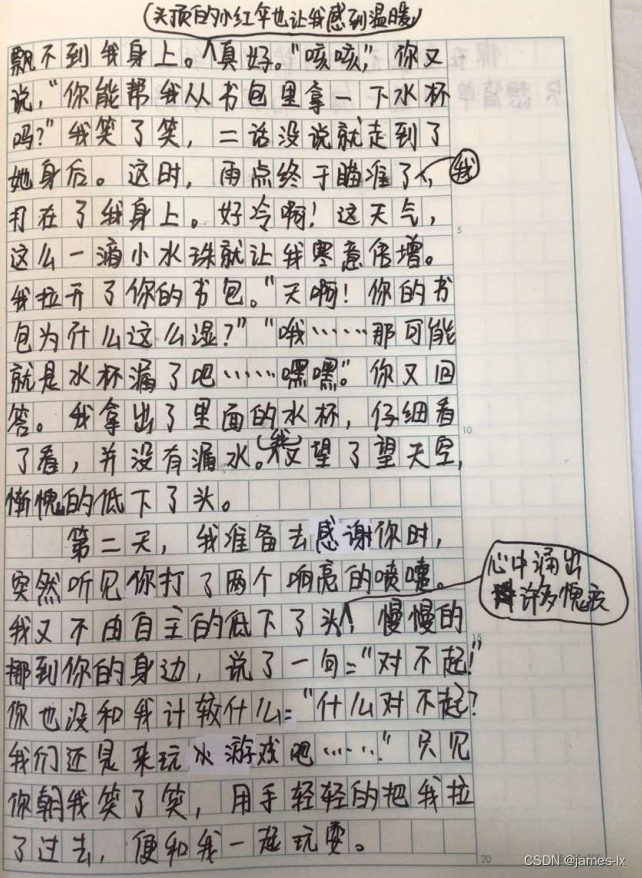 (头顶的小红伞也让我感到温暖)
飘不到我身上。真好。"咳咳,"你又
说,"你能帮我从书包里拿一下水杯
吗?"我笑了笑,二话没说就走到了
她身后。这时,雨点终于瞄准了,我
打在了我身上。好冷啊!这天气,
5
这么一滴小水珠就让我寒意倍增。
我拉开了你的书包。"天啊!你的书
包为什么这么湿?""哦……那可能
就是水杯漏了吧……嘿嘿。"你又回
答。我拿出了里面的水杯,仔细看
10
了看,并没有漏水。(我)又望了望天空,
惭愧的低下了头。
第二天,我准备去感谢你时,
突然听见你打了两个响亮的喷嚏。
心中涌出
许多愧疚
我又不由自主的低下了头,慢慢的
15
挪到你的身边,说了一句:"对不起!"
你也没和我计较什么:"什么对不起?
我们还是来玩水游戏吧……"只见
你朝我笑了笑,用手轻轻的把我拉
了过去,便和我一起玩耍。
20
CSDN @james-lx